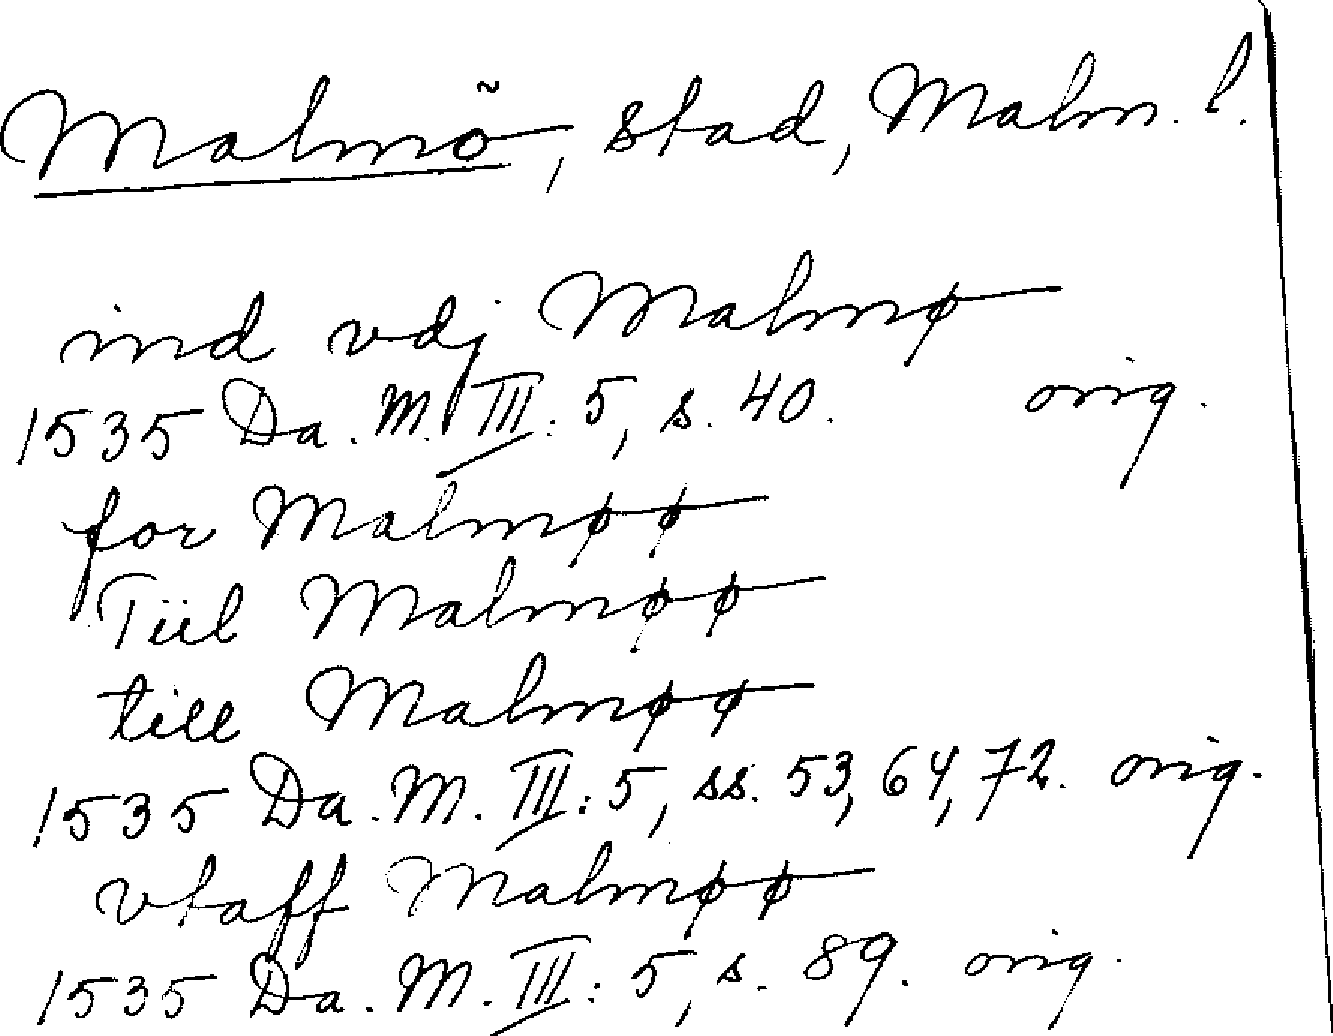 Malmö, stad, Malm. l.
ind vdj Malmø
1535 Da. M. III: 5, s. 40. orig.
for Malmøø
Tiil Malmøø
till Malmøø
1535 Da. M. III: 5, ss. 53, 64, 72. orig.
vtaff Malmøø
1535 Da. M. III: 5, s. 89. orig.